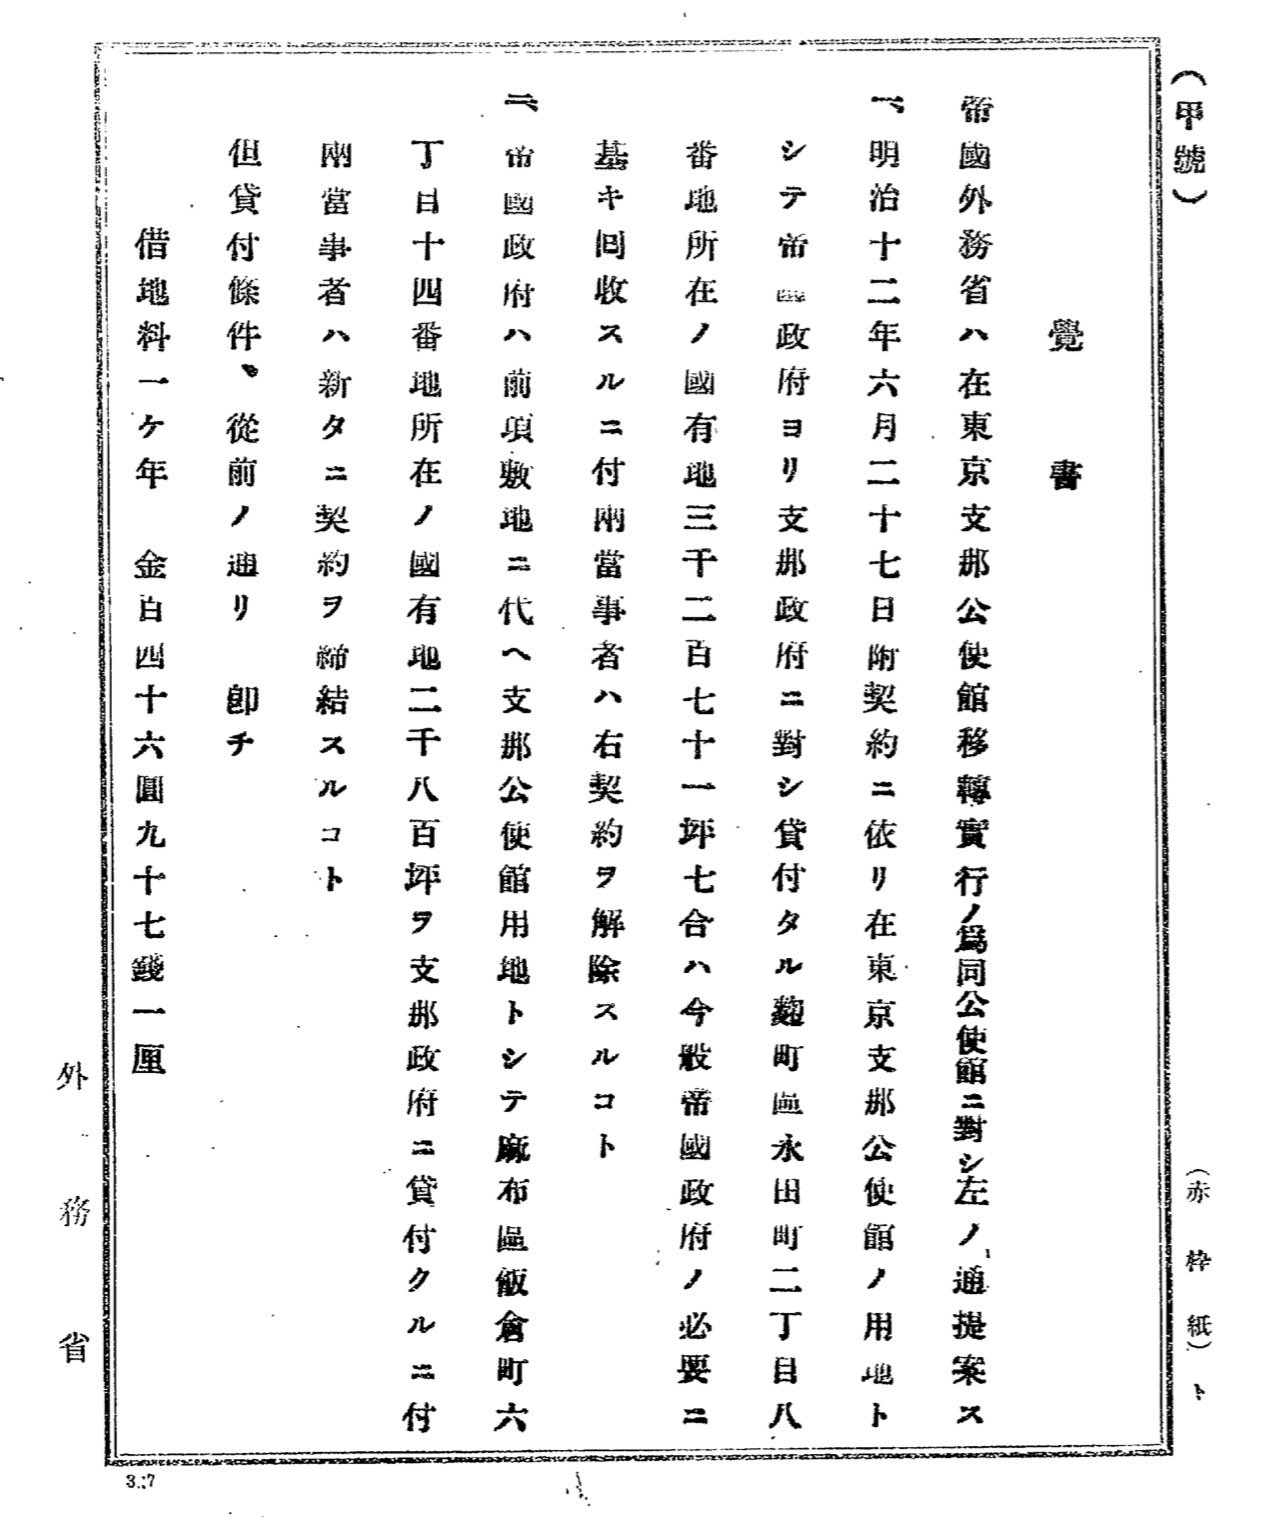 (甲號)
覺書
帝國外務省ハ在東京支那公使館移轉實行ノ爲同公使館ニ對シ左ノ通提案ス
一、明治十二年六月二十七日附契約ニ依リ在東京支那公使館ノ用地ト
シテ帝國政府ヨリ支那政府ニ對シ貸付タル麹町區永田町二丁目八
番地所在ノ國有地三千二百七十一坪七合ハ今般帝國政府ノ必要ニ
基キ囘收スルニ付兩當事者ハ右契約ヲ解除スルコト
二、帝國政府ハ前項敷地ニ代ヘ支那公使館用地トシテ麻布區飯倉町六
丁目十四番地所在ノ國有地二千八百坪ヲ支那政府ニ貸付クルニ付
兩當事者ハ新タニ契約ヲ締結スルコト
但貸付條件ハ從前ノ通リ 卽チ
借地料一ケ年 金百四十六圓九十七錢一厘
外務省
(赤枠紙)ト